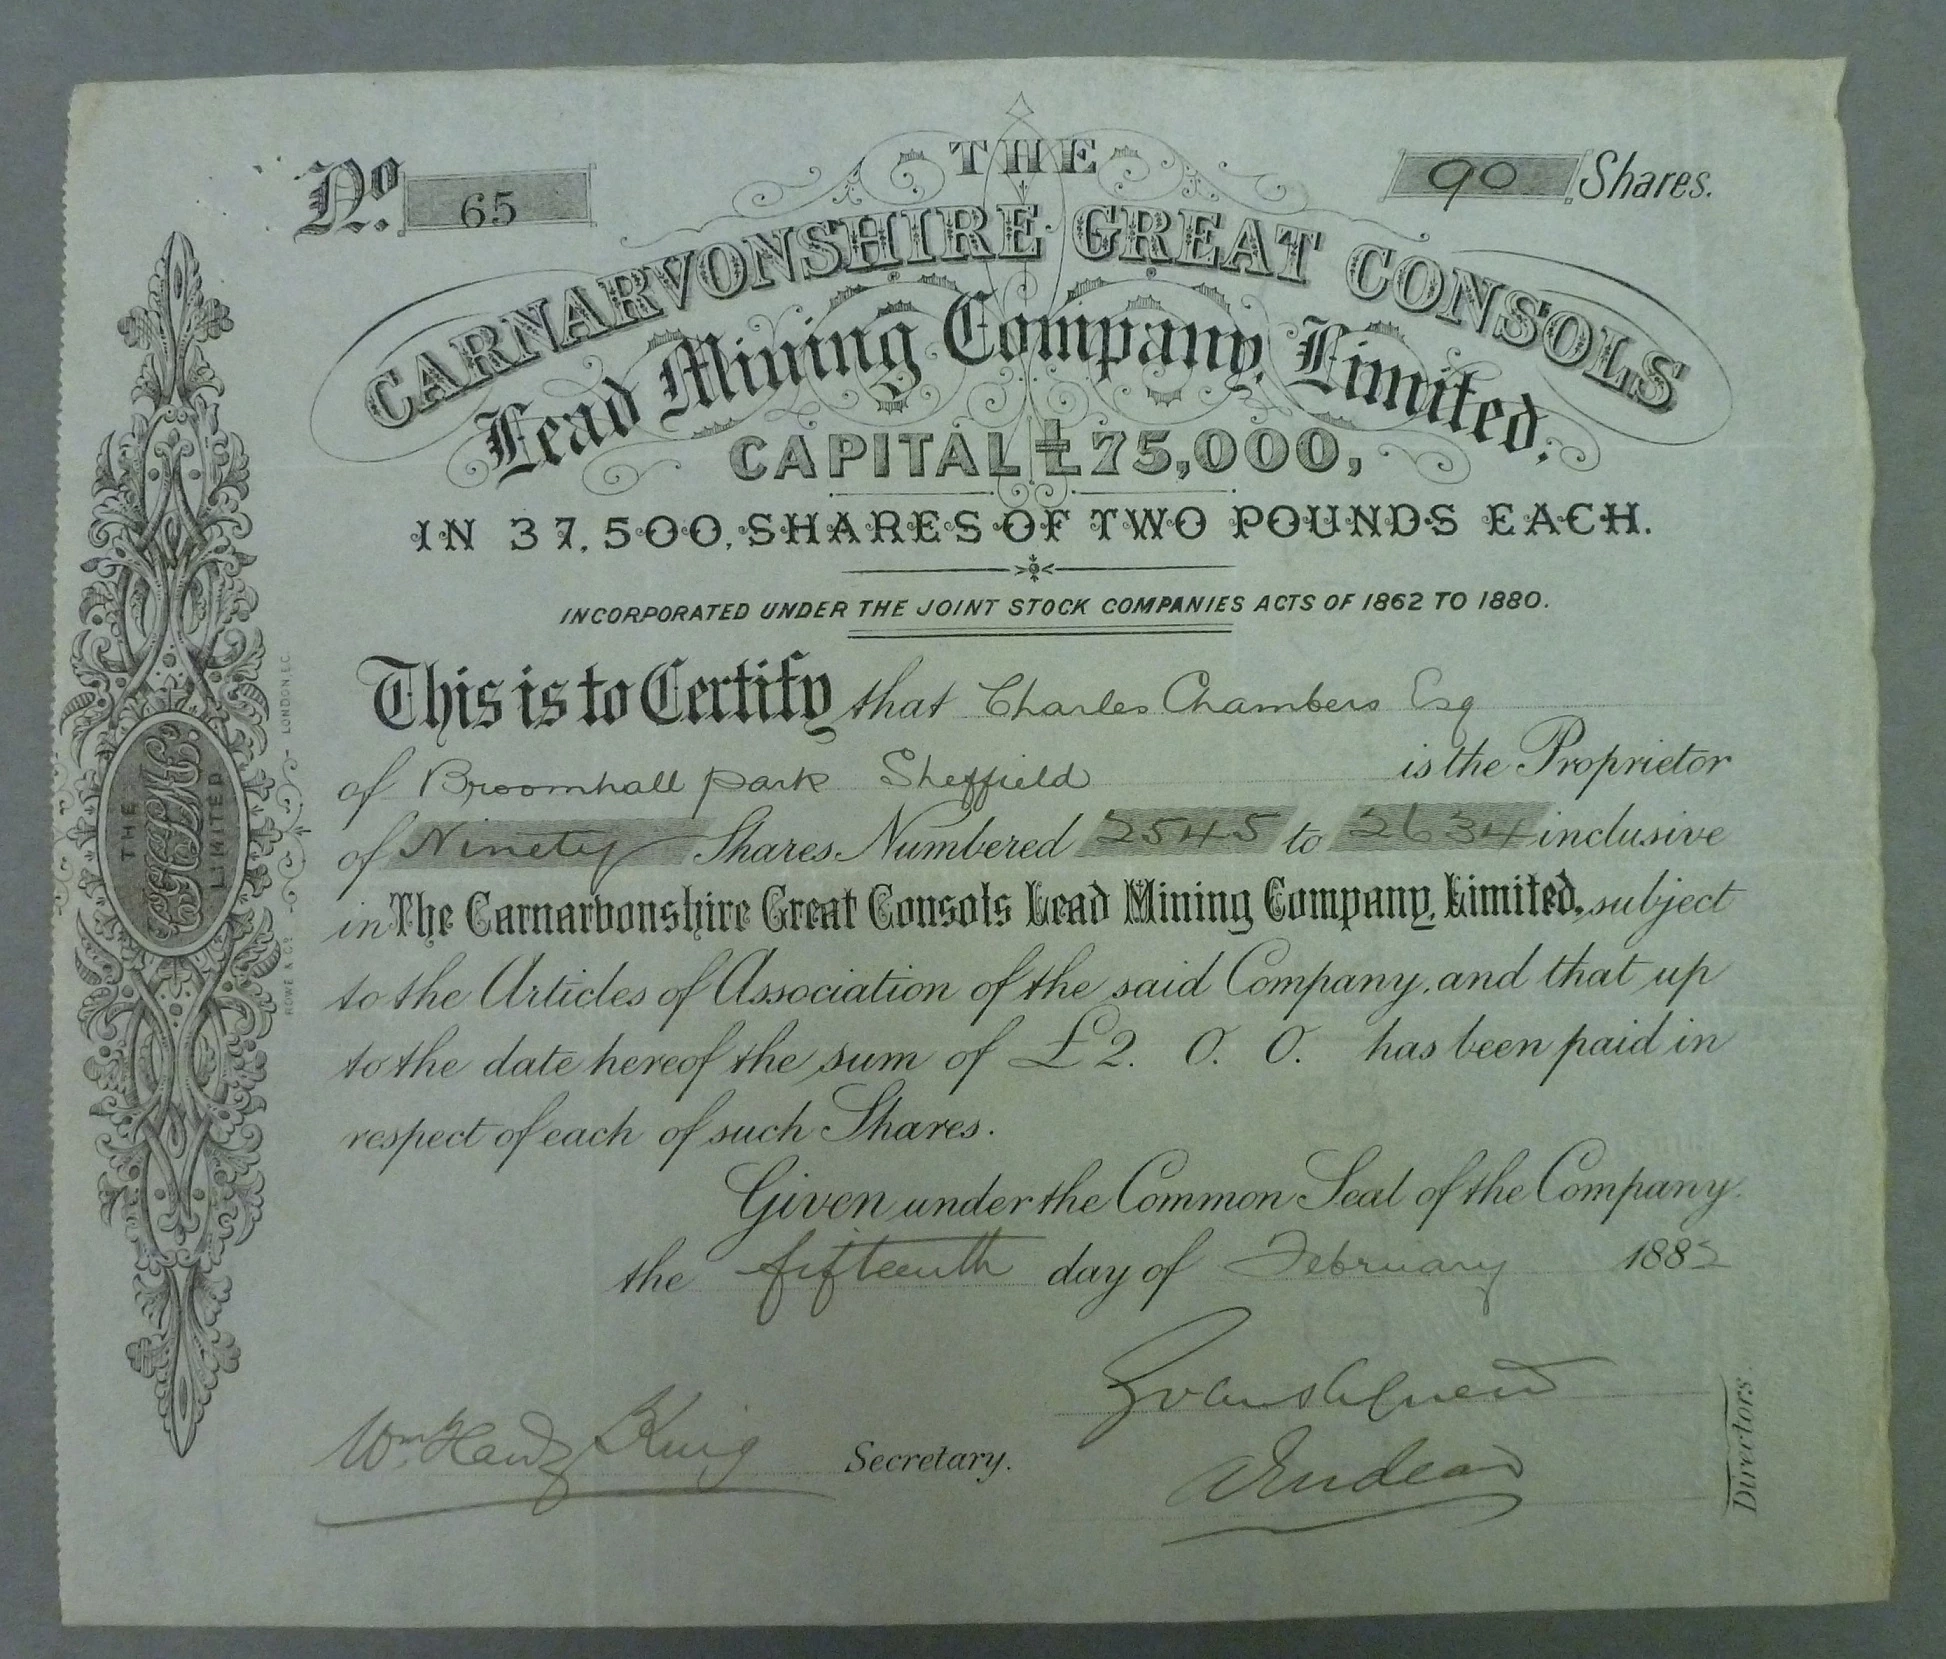 No. 65
90 Shares.
THE
CARNARVONSHIRE GREAT CONSOLS
Lead Mining Company, Limited;
CAPITAL £75,000,
IN 37,500, SHARES OF TWO POUNDS EACH.
INCORPORATED UNDER THE JOINT STOCK COMPANIES ACTS OF 1862 TO 1880.
This is to Certify that Charles Chambers Esq
of Broomhall park Sheffield is the Proprietor
of Ninety Shares Numbered 2545 to 2634 inclusive
in The Carnarvonshire Great Consols Lead Mining Company, Limited, subject
to the Articles of Association of the said Company, and that up
to the date hereof the sum of £2. 0. 0. has been paid in
respect of each of such Shares.
Given under the Common Seal of the Company
the fifteenth day of February 1882
Wm Handz King Secretary.
Directors
THE
LIMITED
ROWE & Co. LONDON E.C.